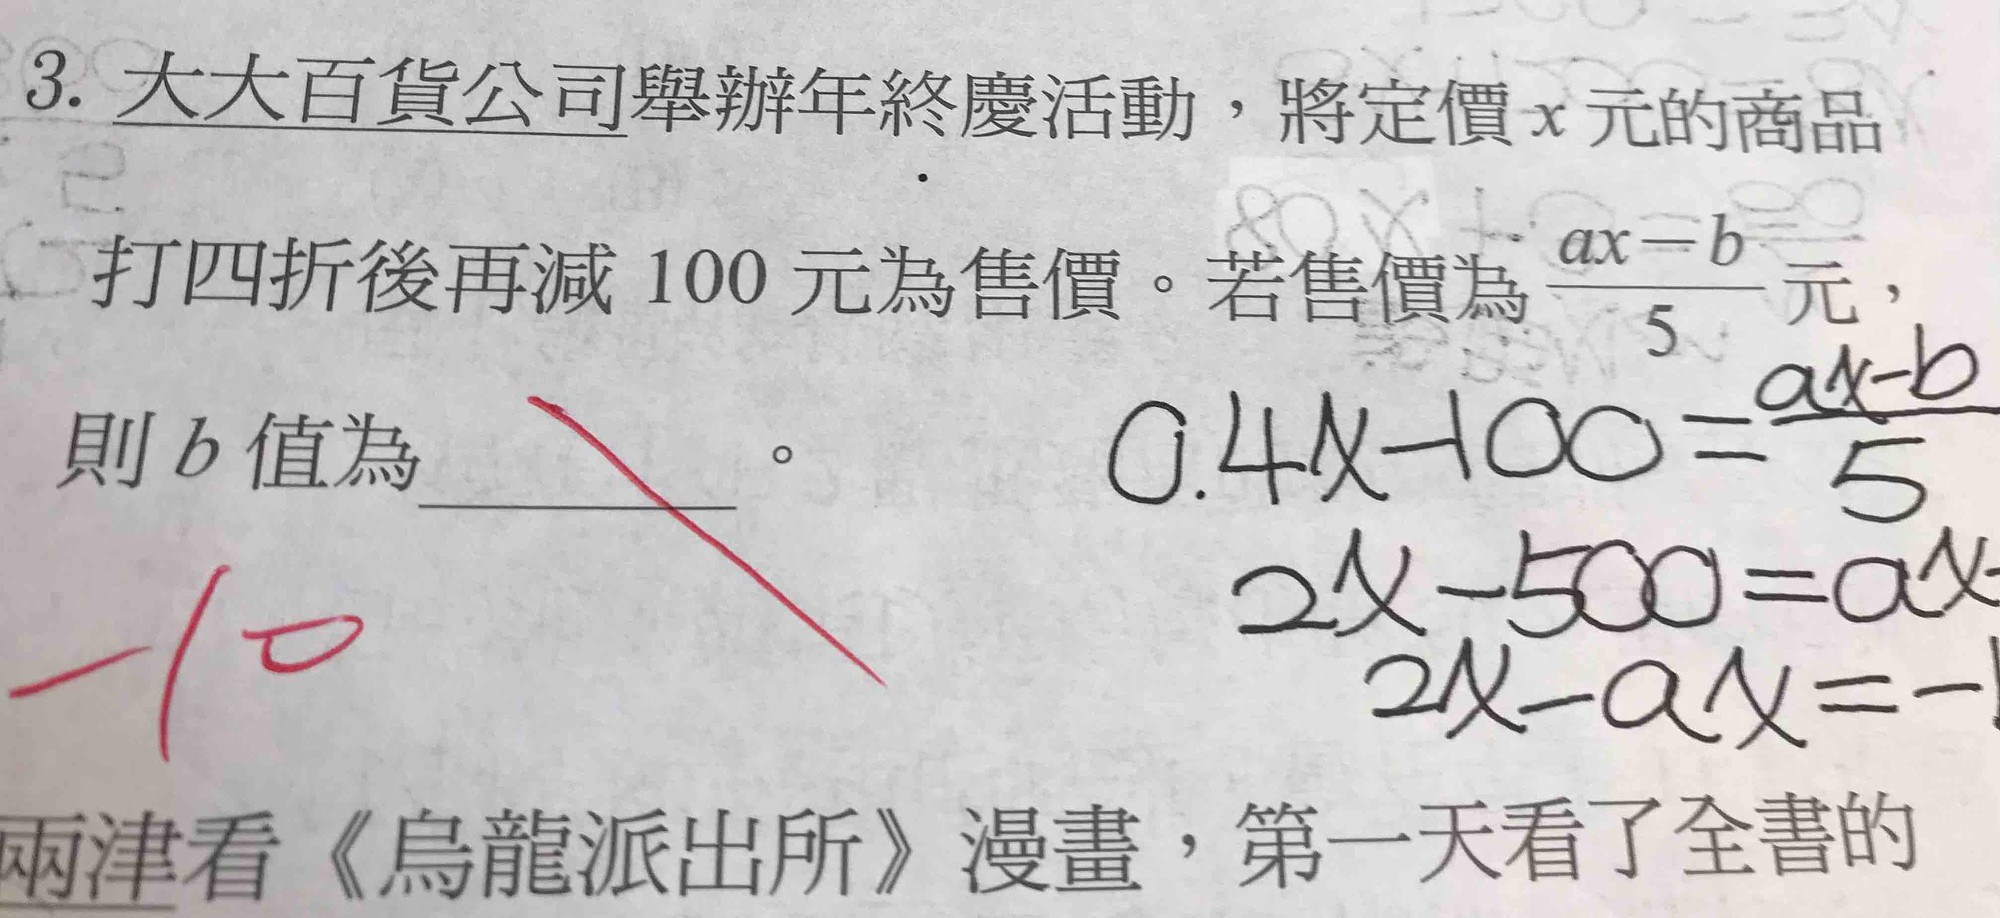 3. 大大百貨公司舉辦年終慶活動，將定價 x 元的商品
打四折後再減 100 元為售價。若售價為 \frac{ax=b}{5} 元，
則 b 值為______。
0.4x-100=\frac{ax-b}{5}
2x-500=ax-
2x-ax=-1
-10
兩津看《烏龍派出所》漫畫，第一天看了全書的